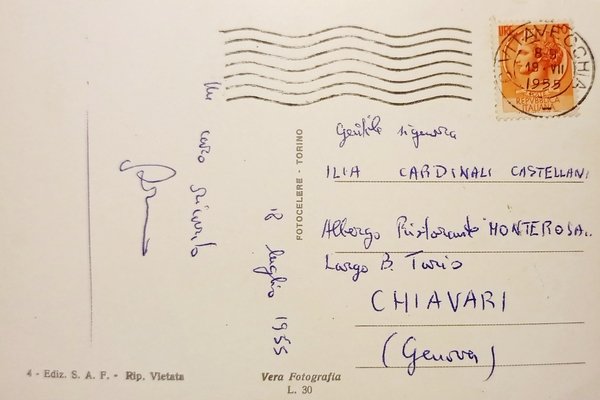 Un caro ricordo
18 luglio 1955
FOTOCELERE - TORINO
CIVITAVECCHIA
18·VII
1955
REPVBBLICA
ITALIANA
Gentile signora
ILIA CARDINALI CASTELLANI
Albergo Ristorante "MONTEROSA"
Largo B. Torio
CHIAVARI
(Genova)
4 - Ediz. S. A. F. - Rip. Vietata
Vera Fotografia
L. 30